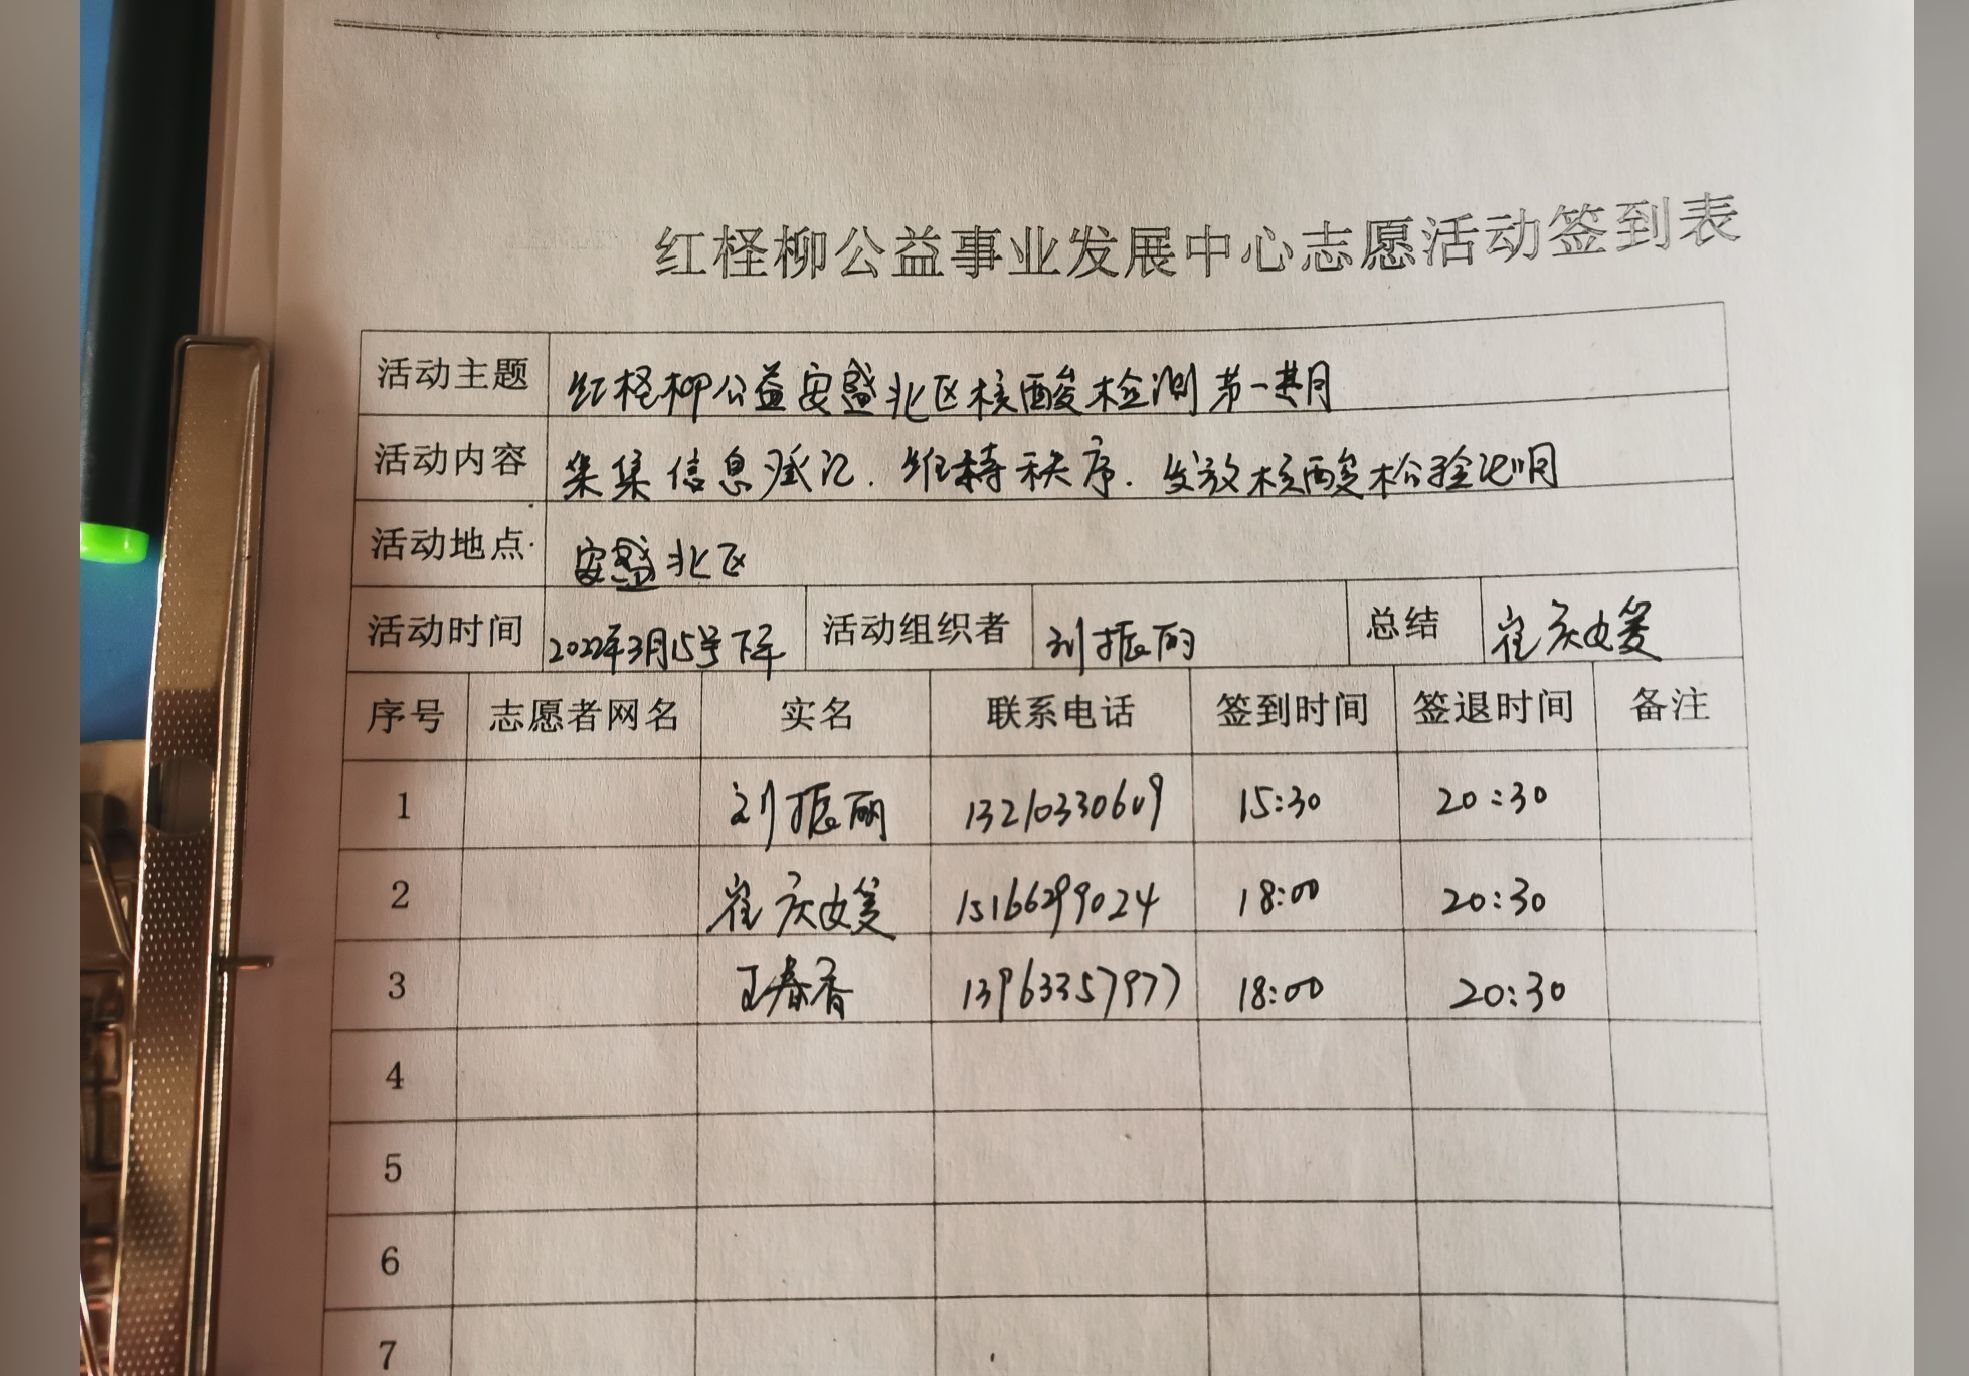 红柽柳公益事业发展中心志愿活动签到表
活动主题 红柽柳公益安盛北区核酸检测第一期
活动内容 集集信息登记.维持秩序.发放核酸检验证明
活动地点 安盛北区
活动时间 2022年3月15号下午 活动组织者 刘振丽 总结 崔庆媛
序号 志愿者网名 实名 联系电话 签到时间 签退时间 备注
1 刘振丽 13210330609 15:30 20:30
2 崔庆媛 15166299024 18:00 20:30
3 王春香 13963357977 18:00 20:30
4
5
6
7